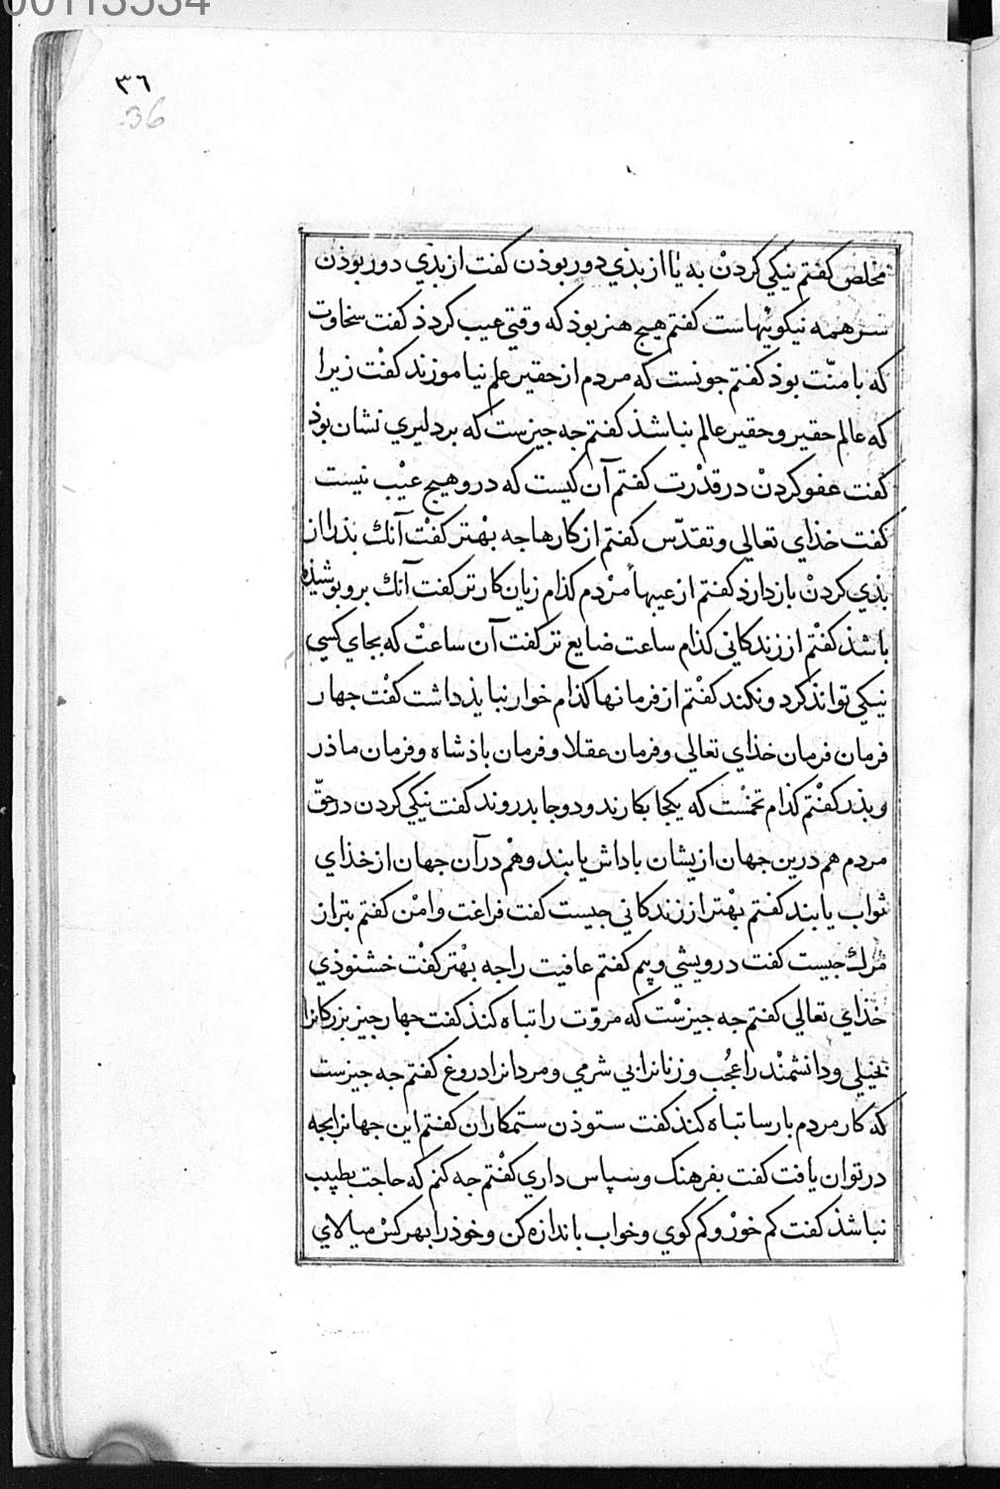 00113534
٣٦
36
مخلص كفتم نيكي كردن به يا از بذي دور بوذن كفت از بذي دور بوذن
سر همه نيكويْهاست كفتم هيج هنر بوذ كه وقتي عيب كردذ كفت سخاوت
كه با منّت بوذ كفتم جونست كه مردم از حقير علم نياموزند كفت زيرا
كه عالم حقير و حقير عالم نباشذ كفتم جه جيزست كه بر دليري نشان بوذ
كفت عفو كردن در قدْرت كفتم آن كيست كه درو هيج عيْب نيست
كفت خذاي تعالي و تقدّس كفتم از كارها جه بهْتر كفْت آنك بذ را از
بذي كردنْ باز دارذ كفتم از عيبهاء مرْدم كذام زيان كارتر كفت آنك برو بوشيذه
باشذ كفتم از زندكاني كذام ساعت ضايع تر كفت آن ساعتْ كه بجاي كسي
نيكي تواند كرد و نكند كفْتم از فرمانها كذام خوار نبايذ داشت كفْت جهار
فرمان فرمان خذاي تعالي و فرمان عقلا و فرمان باذشاه و فرمان ماذر
و بذر كفْتم كذام تخمسْت كه يكجا بكارند و دو جا بدروند كفت نيكي كردن در حقّ
مردم هم درين جهان ازيشان باداش يابند و همْ در آن جهان از خذاي
ثواب يابند كفتم بهْتر از زندكاني جيست كفت فراغت و امنْ كفتم بتر از
مرك جيست كفت درويشي و بيم كفتم عافيت را جه بهْتر كفْت خشنوذي
خذاي تعالي كفتم جه جيزسْت كه مروّت را تباه كند كفت جهار جيز بزركانرا
بخيلي و دانشمنْد را عُجب و زنانرا بي شرمي و مردانرا دروغ كفتم جه جيزست
كه كار مردم بارسا تباه كند كفت ستوذن ستمكاران كفتم اين جهانرا بجه
در توان يافت كفت بفرهنك و سباس داري كفْتم جه كنم كه حاجت بطبيب
نباشذ كفت كم خورْ و كم كوي و خواب باندازه كن و خوذ را بهر كسْ ميالاي